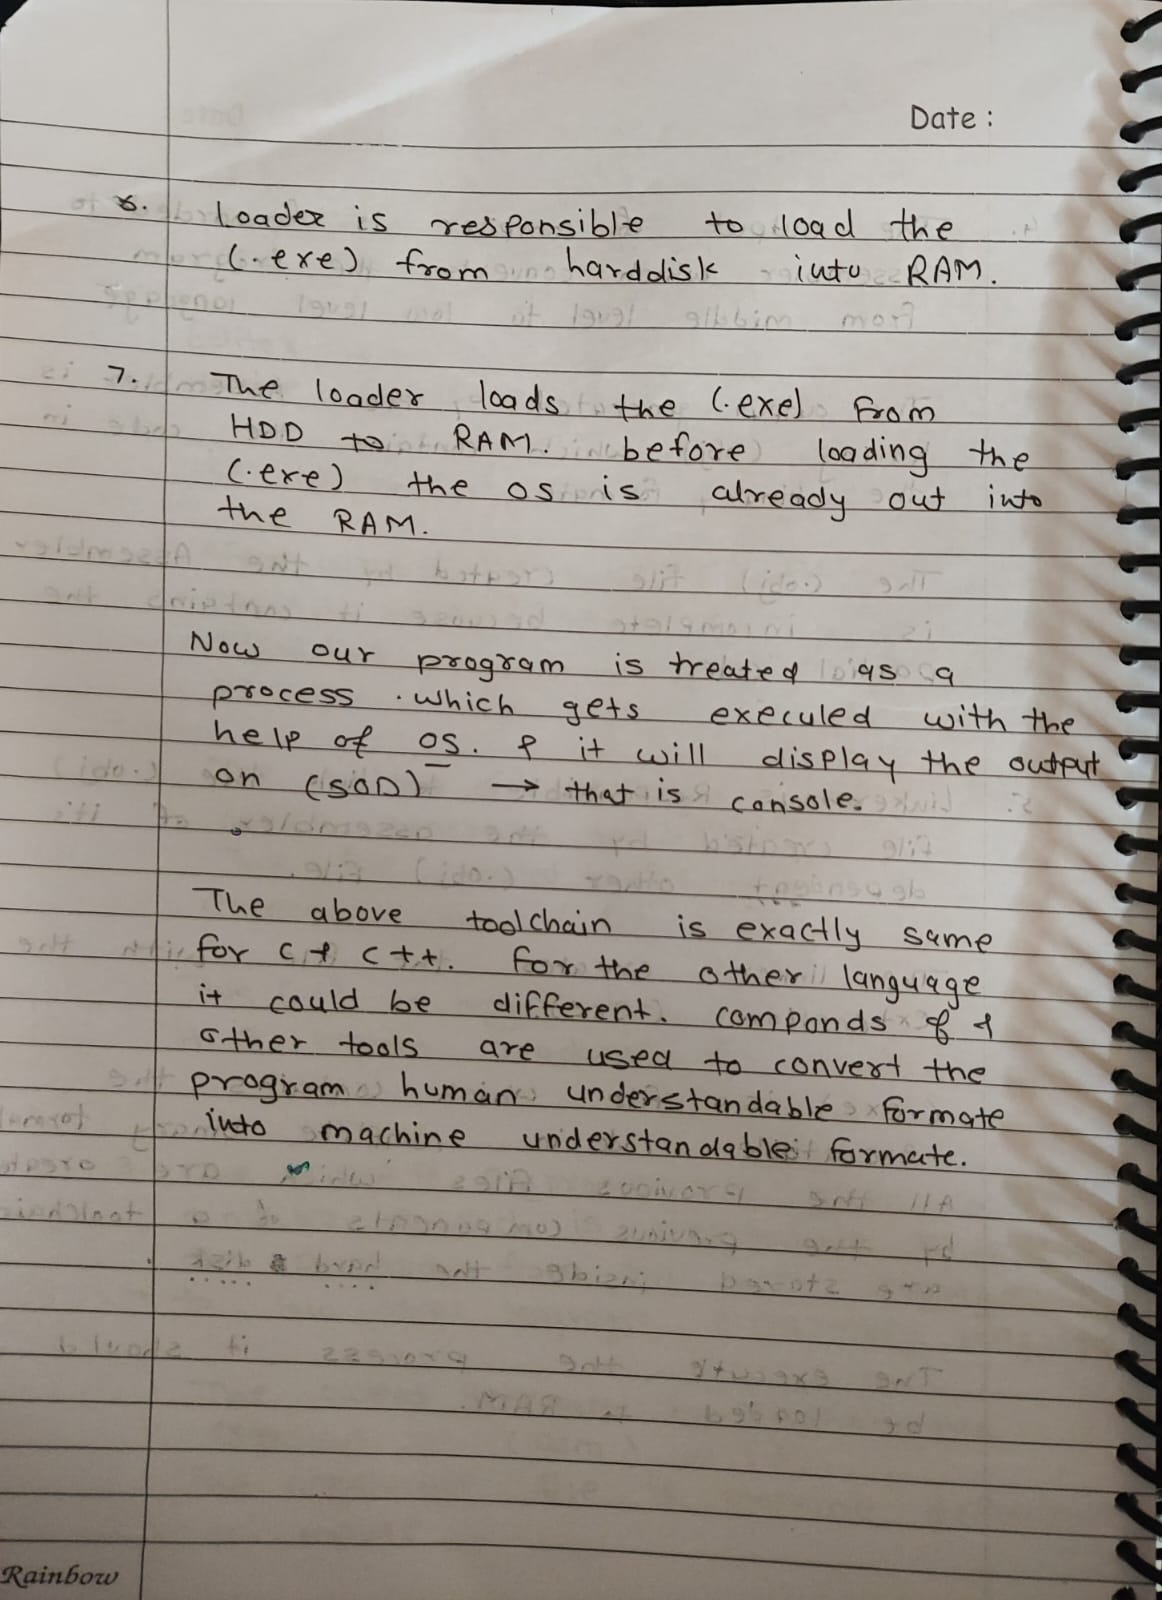 Date :
6. Loader is responsible to load the
(.exe) from harddisk into RAM.
7. The loader loads the (.exe) from
HDD to RAM. before loading the
(.exe) the OS is already out into
the RAM.
Now our program is treated as a
process . which gets execuled with the
help of OS. & it will display the output
on (SOD) → that is console.
The above toolchain is exactly same
for C & C++. for the other language
it could be different. componds of &
other tools are used to convert the
program human understandable formate
into machine understandable formate.
Rainbow